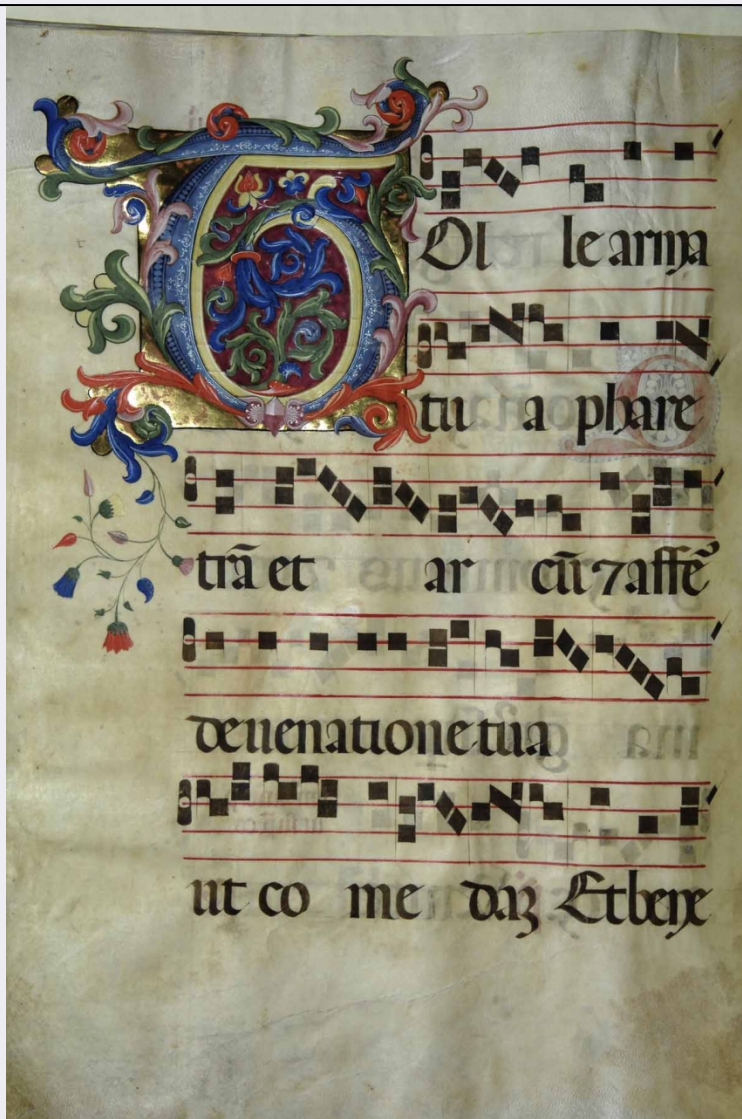 TOl le arma
tu a phare
trā et ar cū ⁊ affē
de uenatione tua
ut co me daꝫ Et bene